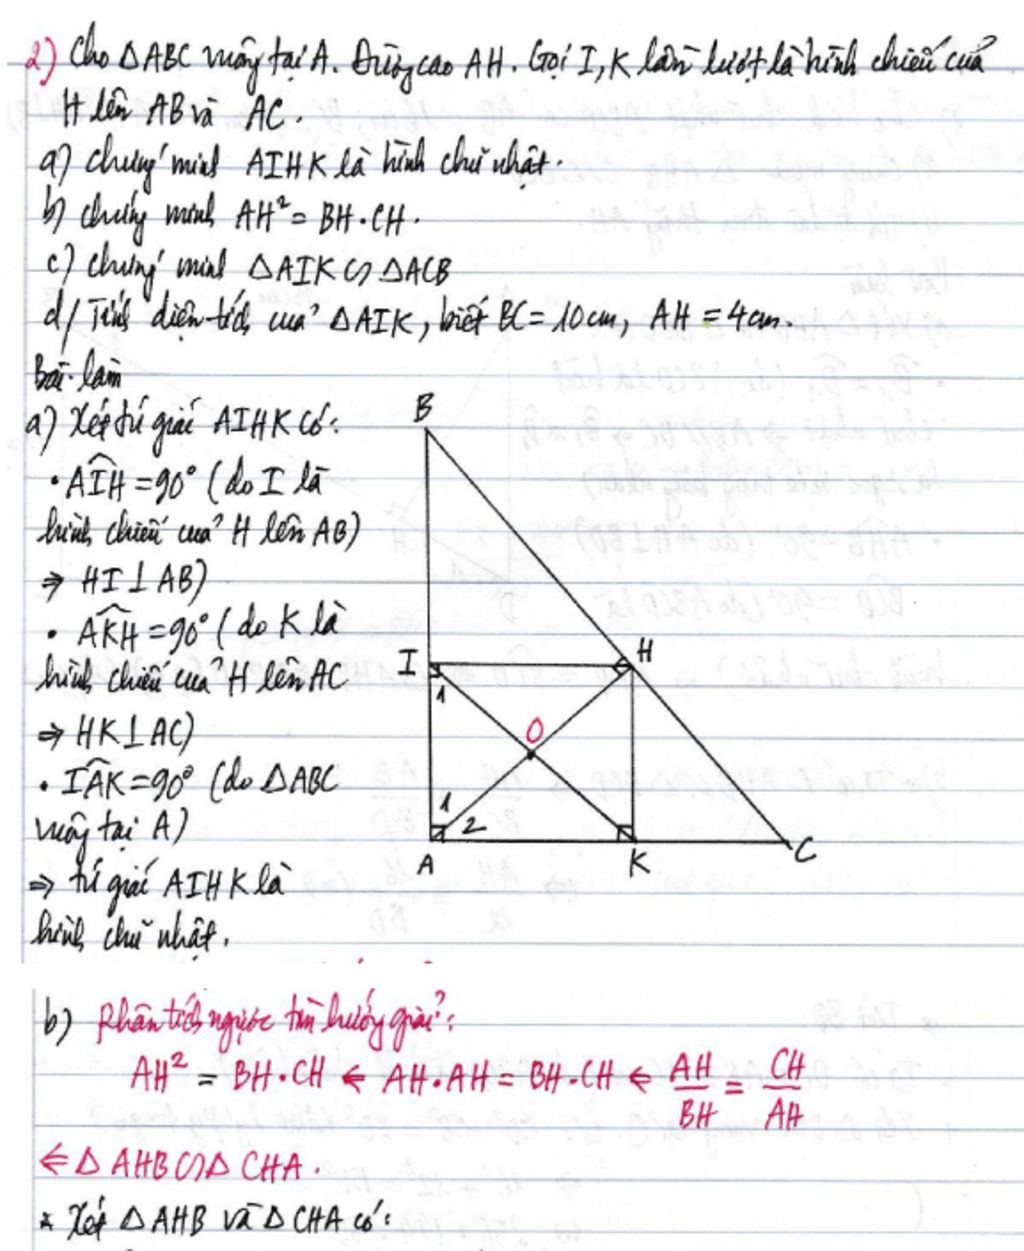 2) Cho △ABC vuông tại A. Đường cao AH. Gọi I, K lần lượt là hình chiếu của
H lên AB và AC.
a) chứng minh AIHK là hình chữ nhật.
b) chứng minh AH² = BH.CH.
c) chứng minh △AIK ∽ △ACB
d/ Tính diện tích của △AIK, biết BC = 10cm, AH = 4cm.
Bài làm
a) Xét tứ giác AIHK có:
• AIH = 90° (do I là
hình chiếu của H lên AB)
⇒ HI ⊥ AB)
• AKH = 90° (do K là
hình chiếu của H lên AC
⇒ HK ⊥ AC)
• IAK = 90° (do △ABC
vuông tại A)
⇒ tứ giác AIHK là
hình chữ nhật.
B
I
H
1
O
1
2
A
K
C
b) Phân tích ngược tìm hướng giải:
AH² = BH.CH ⇐ AH.AH = BH.CH ⇐ AH/BH = CH/AH
⇐ △ AHB ∽ △ CHA.
* Xét △AHB và △CHA có: